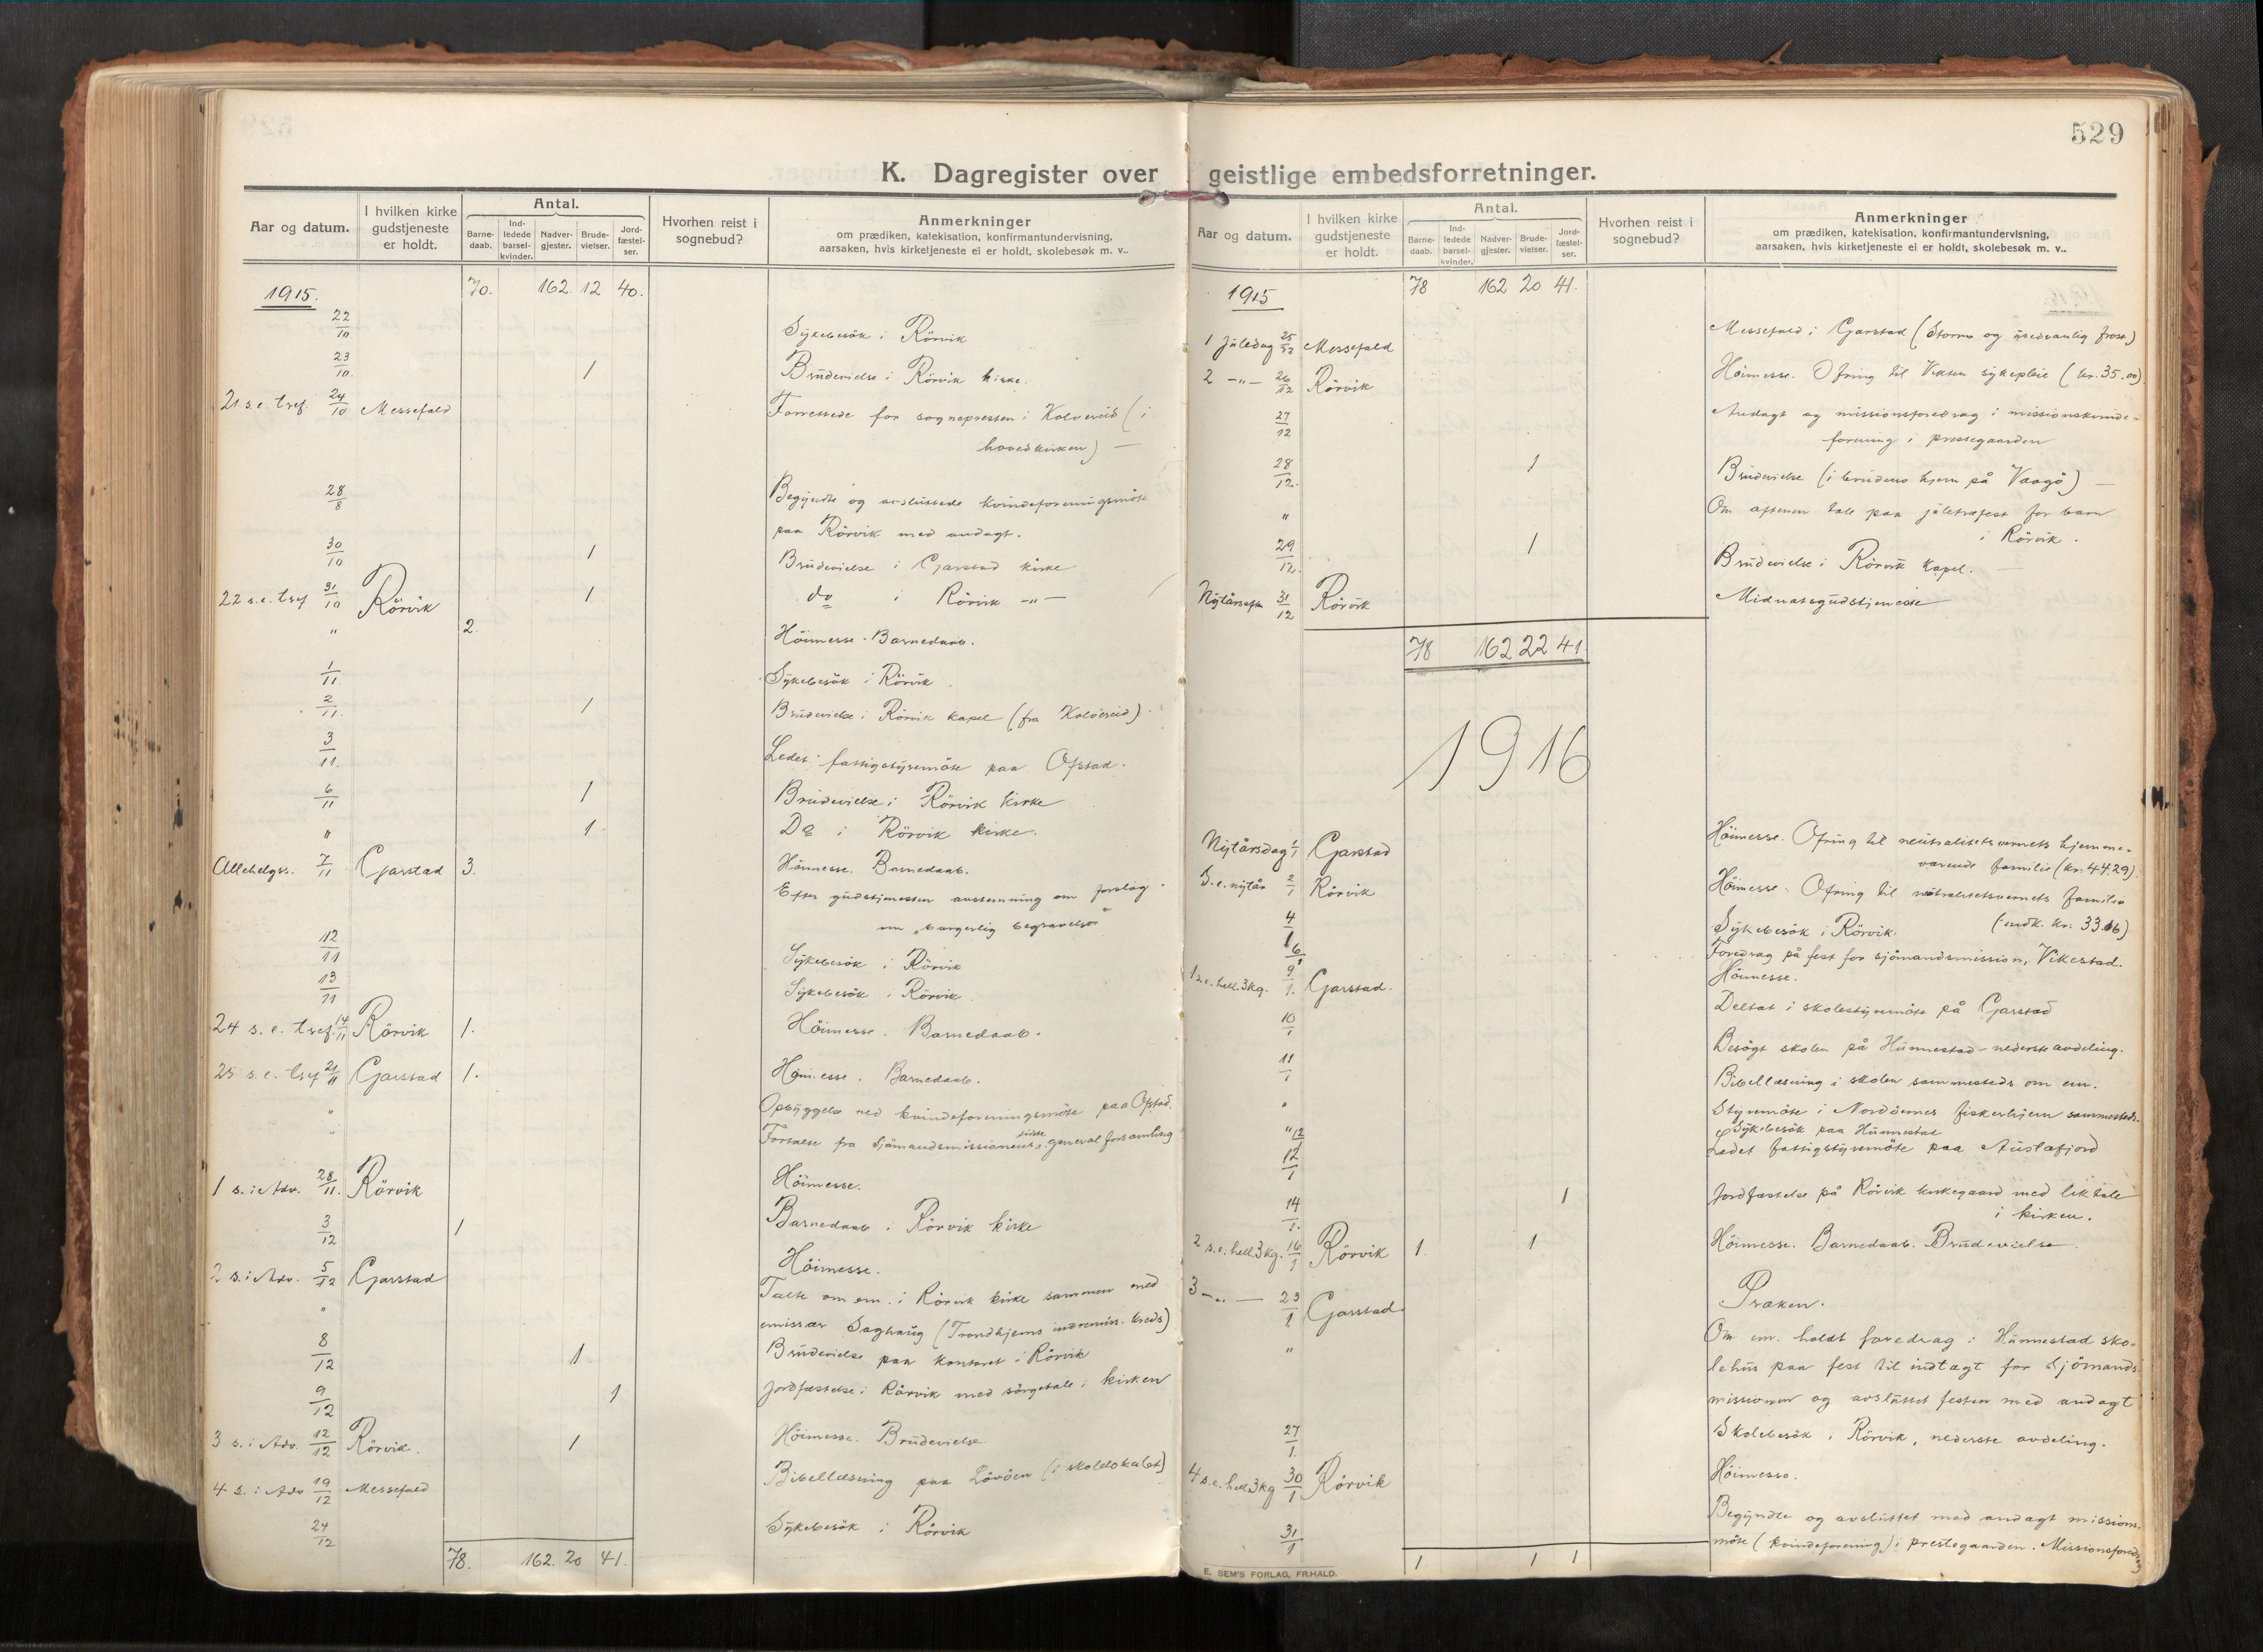 529
K. Dagregister over geistlige embedsforretninger.
Aar og datum. I hvilken kirke gudstjeneste er holdt. Antal. Barne-daab. Ind-ledede barsel-kvinder. Nadver-gjester. Brude-vielser. Jord-fæstel-ser. Hvorhen reist i sognebud? Anmerkninger om prædiken, katekisation, konfirmantundervisning, aarsaken, hvis kirketjeneste ei er holdt, skolebesøk m. v..
1915. 70. 162. 12 40.
22/10 Sykebesök i Rörvik
23/10 1 Brudevielse i Rörvik kirke.
21 s.e. tref. 24/10 Messefald Forrettede for sognepresten i Kolvereid (i
hovedkirken) —
28/8 Begyndte og avsluttede kvindeforeningsmöte
paa Rörvik med andagt.
30/10 1 Brudevielse i Garstad kirke
22 s.e. tref 31/10 Rörvik 1 do i Rörvik -"-
" 2. Höimesse. Barnedaab.
1/11. Sykebesök i Rörvik
2/11. 1 Brudevielse i Rörvik kapel (fra Kolvereid)
3/11. Ledet fattigstyremöte paa Ofstad.
6/11 1 Brudevielse i Rörvik kirke
" 1. Do i Rörvik kirke.
Allehelgss. 7/11 Garstad 3. Höimesse. Barnedaab.
Efter gudstjenesten avstemning om forslag
om "borgerlig begravelse"
12/11 Sykebesök i Rörvik
13/11 Sykebesök i Rörvik
24 s. e. tref. 14/11 Rörvik 1. Höimesse. Barnedaab.
25 s. e. tref 21/11 Garstad 1. Höimesse. Barnedaab.
" Opbyggelse ved kvindeforeningsmöte paa Ofstad.
" Fortalte fra Sjömandsmissionens sidste generalforsamling
1 s. i Adv. 28/11. Rörvik Höimesse.
3/12 1 Barnedaab i Rörvik kirke
2 s. i Adv. 5/12 Garstad Höimesse.
" Talte om em. i Rörvik kirke sammen med
emissær Saghaug (Trondhjems indremiss. kreds)
8/12 1 Brudevielse paa kontoret i Rörvik
9/12 1 Jordfæstelse i Rörvik med sörgetale i kirken
3 s. i Adv. 12/12 Rörvik. 1 Höimesse. Brudevielse.
Bibellæsning paa Lövöen (i skolelokalet)
4 s. i Adv 19/12 Messefald
24/12 Sykebesök i Rörvik
78. 162. 20 41.
Aar og datum. I hvilken kirke gudstjeneste er holdt. Antal. Barne-daab. Ind-ledede barsel-kvinder. Nadver-gjester. Brude-vielser. Jord-fæstel-ser. Hvorhen reist i sognebud? Anmerkninger om prædiken, katekisation, konfirmantundervisning, aarsaken, hvis kirketjeneste ei er holdt, skolebesøk m. v..
1915 78 162 20 41.
1 Juledag 25/12 Messefald Messefald i Garstad (Storm og usedvanlig frost)
2 -"- 26/12 Rörvik Höimesse. Ofring til Vikten sykepleie (kr. 35.00)
27/12 Andagt og missionsforedrag i missionskvinde-
forening i prestegaarden
28/12. 1 Brudevielse (i brudens hjem på Vaagö) —
" Om aftenen tale paa juletræfest for barn
i Rörvik.
29/12. 1 Brudevielse i Rörvik kapel.
Nytårsaften 31/12 Rörvik Midnatsgudstjeneste
78 162 22 41.
1916
Nytårsdag 1/1 Garstad Höimesse. Ofring til neutralitetsvernets hjemme-
værende familie (kr. 44.29).
S. e. nytår 2/1 Rörvik Höimesse. Ofring til nøitralitetsvernets familie
(indk. kr. 33.16)
4/1 Sykebesök i Rörvik.
6 Foredrag på fest for sjömandsmission, Vikestad.
1 s. e. hell. 3 kg. 9/1. Garstad. Höimesse.
10/1 Deltat i skolestyremöte på Garstad
11/1 Besögt skolen på Hunnestad - nederste avdeling.
Bibellæsning i skolen sammesteds om em.
" Styremöte i Nordöernes fiskerhjem sammesteds.
" 12 Sykebesök paa Hunnestad
12/1 Ledet fattigstyremöte paa Austafjord
14/1. 1 Jordfæstelse på Rörvik kirkegaard med liktale
i kirken.
2 s. e. hell. 3 kg. 16/1 Rörvik 1. 1 Höimesse. Barnedaab. Brudevielse
3 -"- 23/1 Garstad Præken.
" Om em. holdt foredrag i Hunnestad sko-
lehus paa fest til indtægt for sjömands-
missionen og avsluttet festen med andagt
27/1. Skolebesök i Rörvik, nederste avdeling.
4 s. e. hell. 3 kg 30/1 Rörvik Höimesse.
31/1 Begyndte og avsluttet med andagt missions-
möte (kvindeforening) i prestegaarden. Missionsforedrag
1 1 1
E. SEM'S FORLAG, FR.HALD.